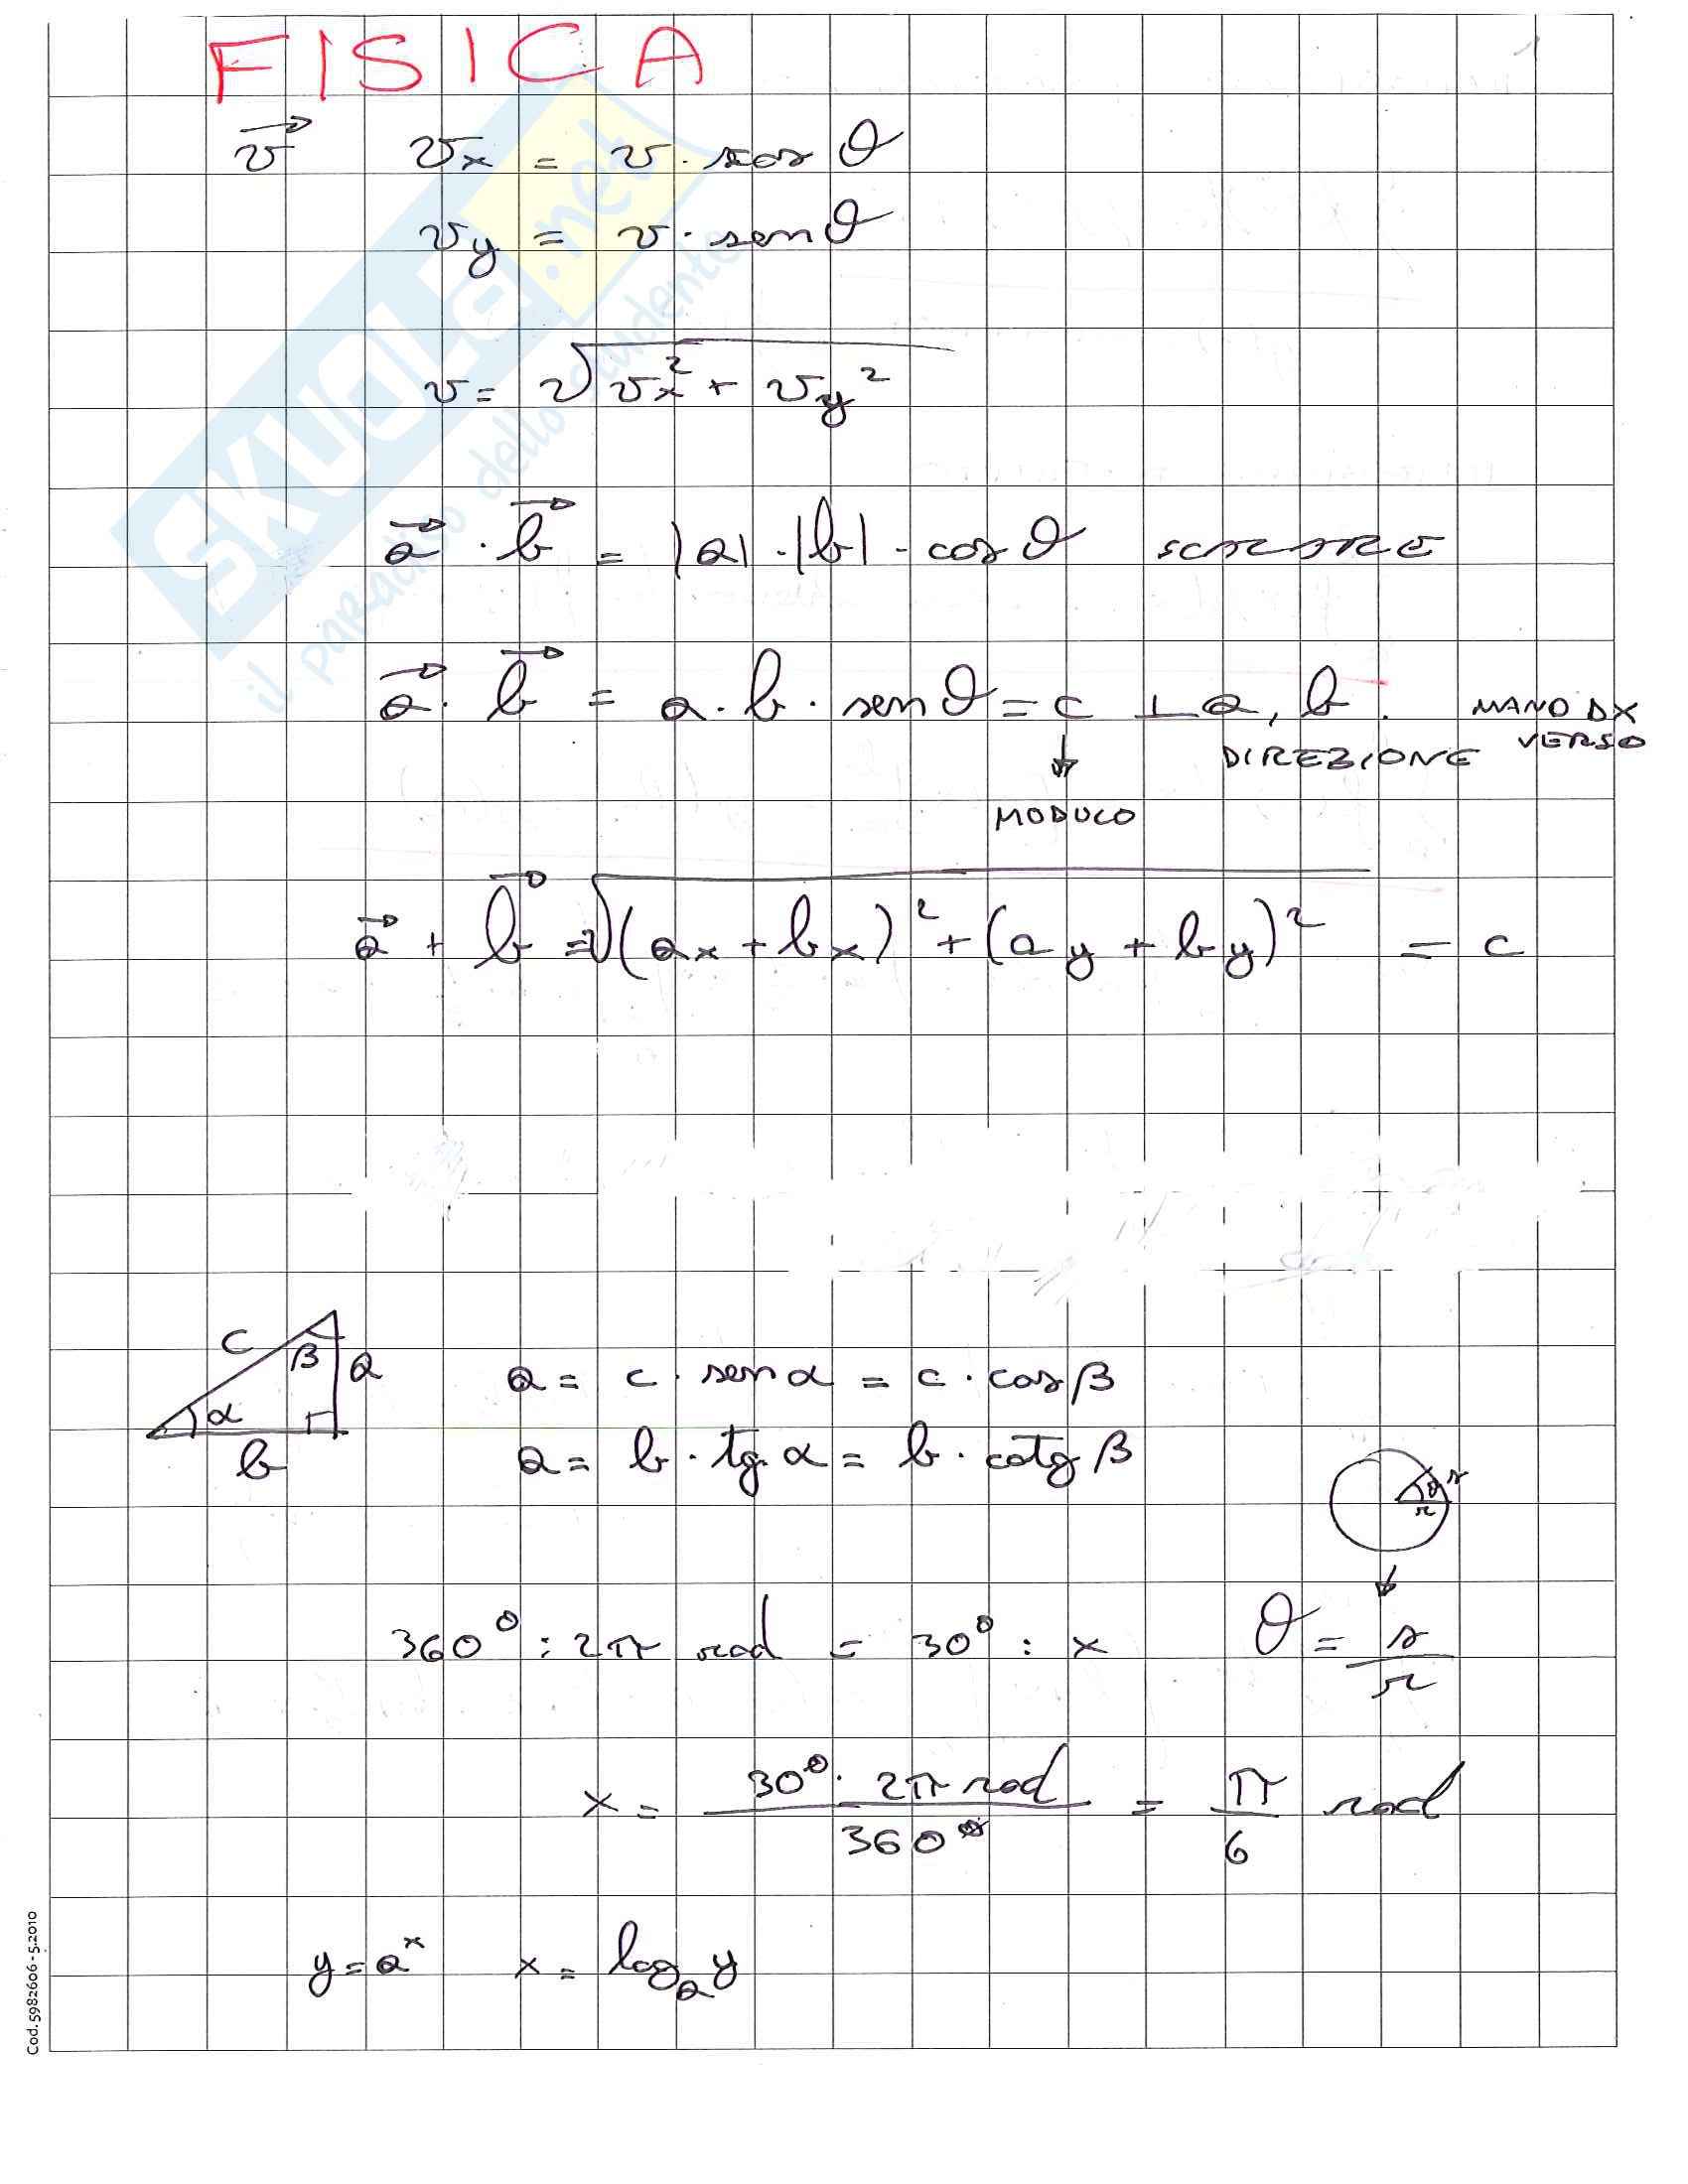 FISICA
v⃗ vx = v · cos θ
vy = v · sen θ
v = √(vx² + vy²)
a⃗ · b⃗ = |a| · |b| · cos θ SCALARE
a⃗ · b⃗ = a · b · sen θ = c ⊥ a, b . MANO DX
↓ DIREZIONE VERSO
MODULO
a⃗ + b⃗ = √((ax + bx)² + (ay + by)²) = c
c β a
α
b
a = c · sen α = c · cos β
a = b · tg α = b · cotg β
θ s
r
↓
360° : 2π rad = 30° : x θ = s/r
x = 30° · 2π rad / 360° = π/6 rad
y = aˣ x = logₐ y
Cod. 5982606 - 5.2010
SKUOLa.net
il paradiso dello studente